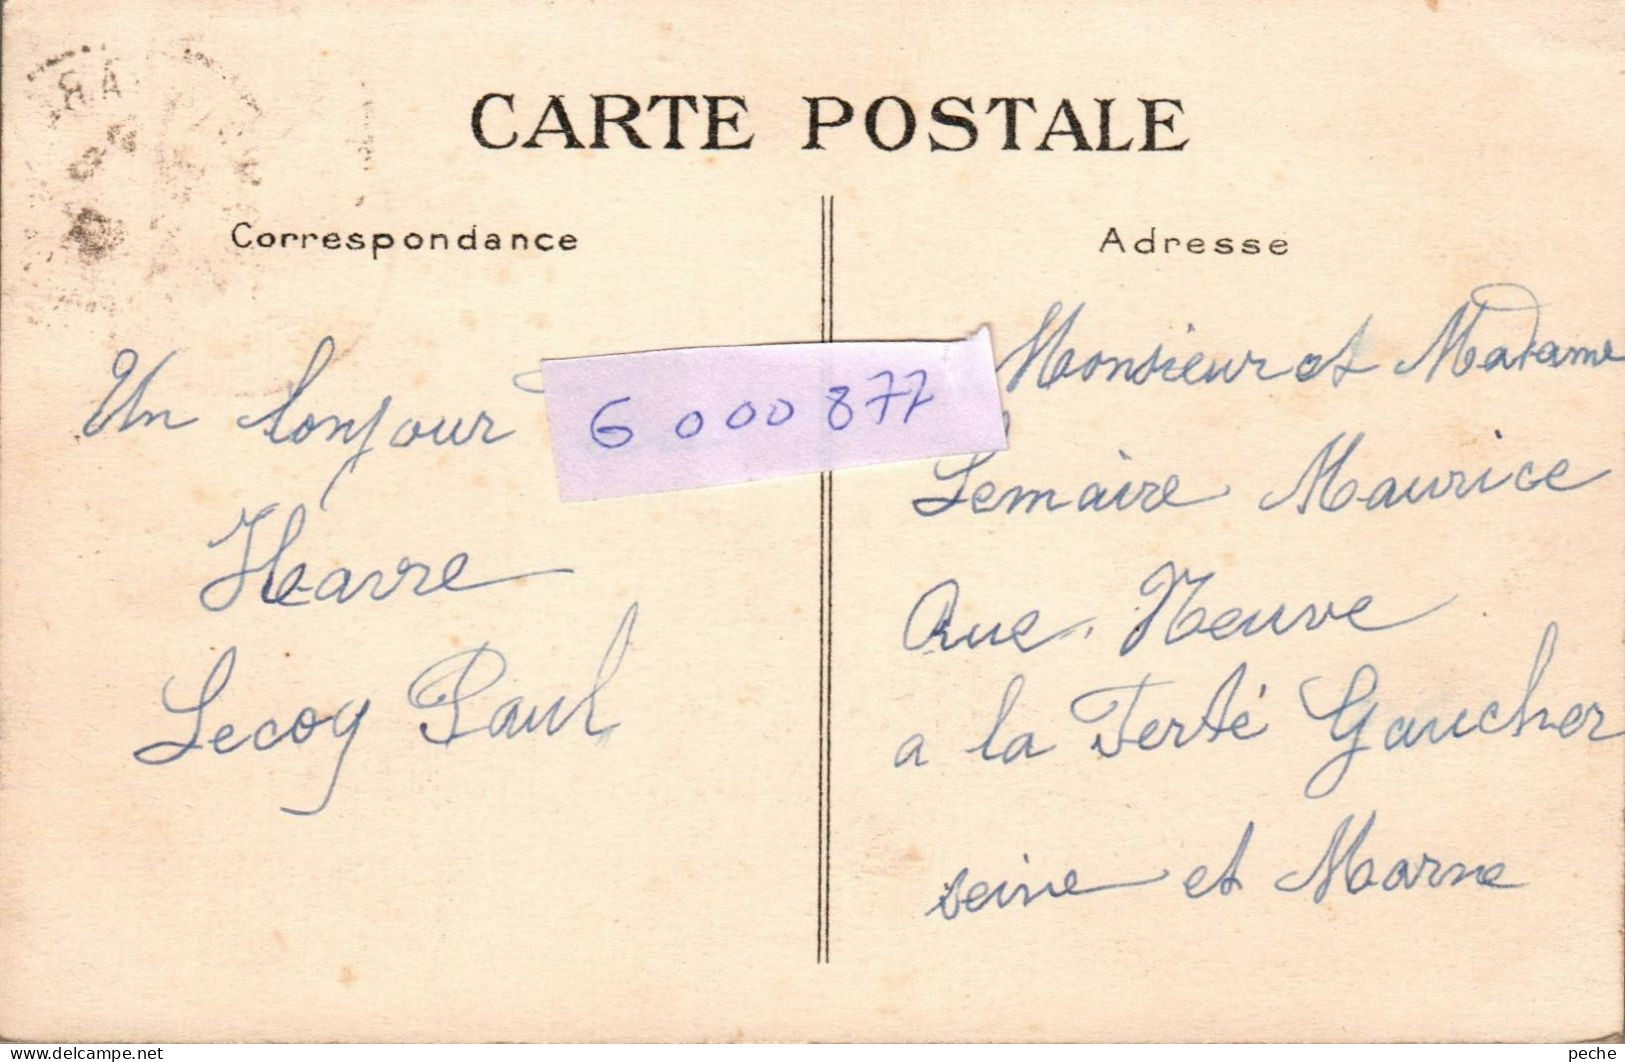 CARTE POSTALE
Correspondance
Adresse
Un bonjour
Havre
Lecoq Paul
6 000 877
Monsieur et Madame
Lemaire Maurice
Rue Neuve
a la Ferté Gaucher
seine et Marne
peche